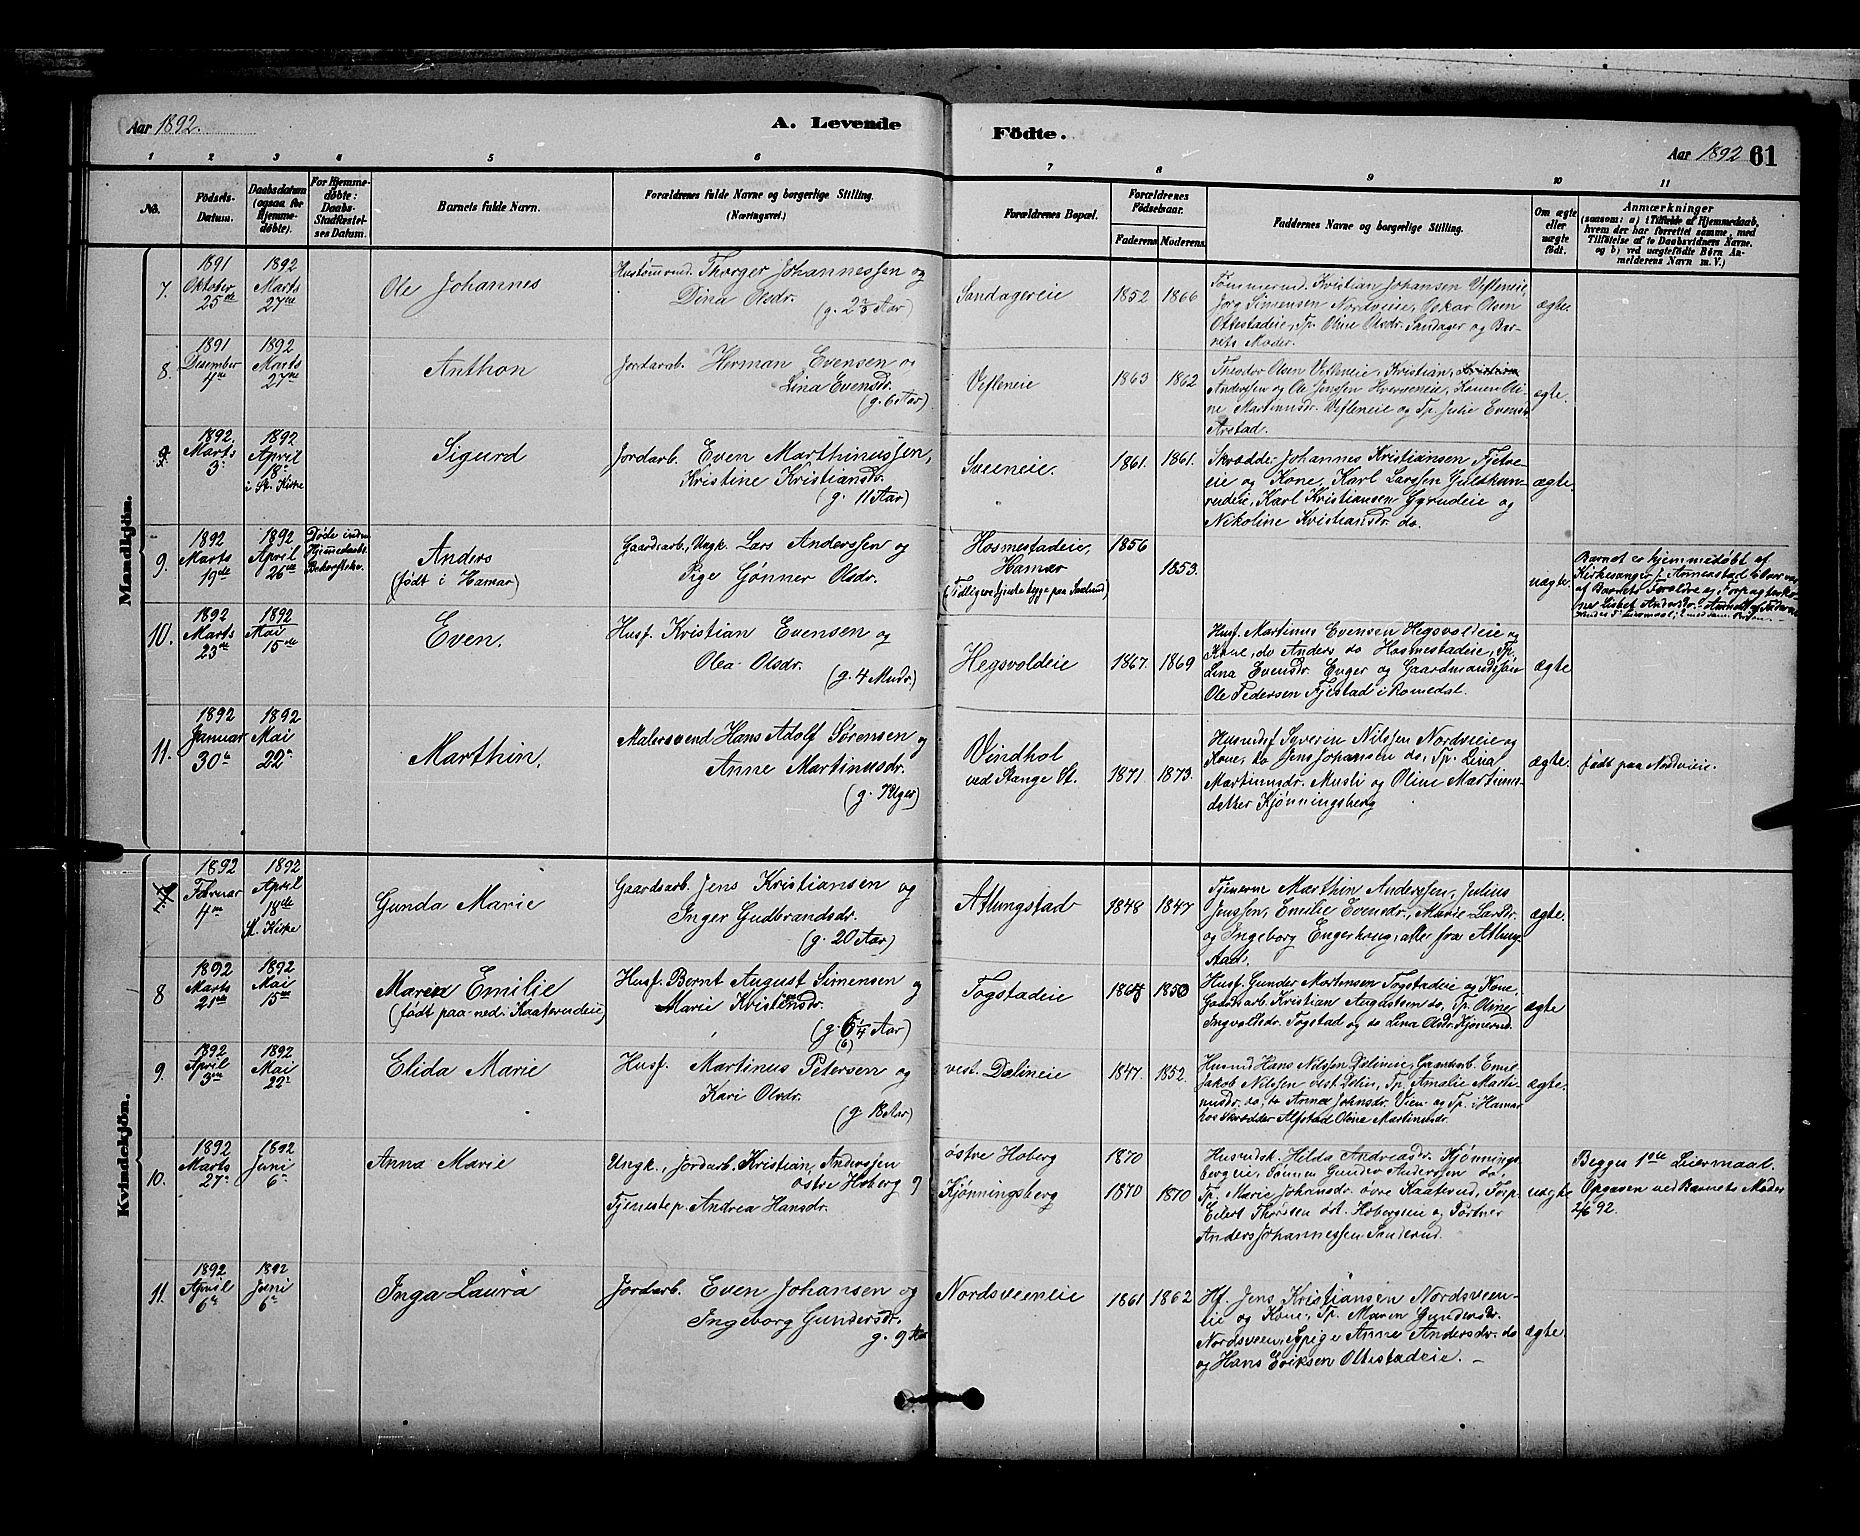 Aar 1892.
A. Levende
Födte.
Aar 1892 61
1 2 3 4 5 6 7 8 9 10 11
No.
Födsels-
Datum.
Daabsdatum
(ogsaa for
Hjemme-
döbte).
For Hjemme-
döbte:
Daabs-
Stadfæstel-
ses Datum.
Barnets fulde Navn.
Forældrenes fulde Navne og borgerlige Stilling.
(Næringsvei.)
Forældrenes Bopæl.
Forældrenes
Födselsaar.
Faderens Moderens
Faddernes Navne og borgerlige Stilling.
Om ægte
eller
uægte
födt.
Anmærkninger
(saasom: a) i Tilfælde af Hjemmedaab,
hvem der har forrettet samme, med
Tilföielse af to Daabsvidners Navne,
og b) ved uægtefödte Börn An-
melderens Navn m. V.)
Mandkjön.
7.
1891
Oktober
25de
1892
Marts
27de
Ole Johannes
Thorger Johannessen og
Dina Olsdr.
(g. 2 2/3 Aar)
Sandagereie
1852 1866
Tømmermd. Kristian Johansen Vefleneie,
Jørg Simensen Nordveie, Oskar Olsen
Ottestadeie, Tp. Oline Olsdr. Sandager og Bar-
nets Moder.
ægte.
8.
1891
Desember
4de
1892
Marts
27de
Anthon
Jordarb. Herman Evensen og
Lina Evensdr.
(g. 6 Aar)
Vefleneie
1863 1862
Theodor Olsen Vefleneie, Kristian
Anderssen og Ole Jenssen Hverveneie, Karen Oli-
ne Martinusdr. Vefleneie og Tp. Julie Evensdr.
Arstad.
ægte.
9.
1892.
Marts
3.
1892
April
18de
i St. Kirke
Sigurd
Jordarb. Even Marthinussen,
Kristine Kristiansdr.
(g. 11 Aar)
Sveeneie.
1861. 1861.
Skrædder Johannes Kristiansen Fjetre-
eie og Kone, Karl Larssen Guldkun-
rudeie, Karl Kristiansen Gyrudeie og
Nikoline Kristiansdr. do.
ægte.
9.
1892
Marts
19de
1892
April
26de
Døde inden
Hjemmedaabs
Bekræftelse.
Anders
(født i Hamar)
Gaardsarb., Ungk. Lars Anderssen og
Pige Gønner Olsdr.
Hosmestadeie,
Hamar
1856
1853.
uægte.
Barnet er hjemmedøbt af
Kirkesanger J. Annerstad
10.
1892
Marts
23de
1892
Mai
15de
Even.
Husf. Kristian Evensen og
Olea Olsdr.
(g. 4 Mndr.)
Hegsvoldeie
1867. 1869
Husf. Martinus Evensen Hegsvoldeie og
Kone, do Anders do Hosmestadeie, Tp.
Lina Evensdr. Enger og Gaardmandssøn
Ole Pedersen Fjestad i Romedal.
ægte
11.
1892
Januar
30te
1892
Mai
22de
Marthin.
Malersvend Hans Adolf Sørensen og
Anne Martinusdr.
(g. 7 Uger)
Vindhol
ved Stange St.
1871. 1873.
Husmdsf. Syverin Nilssen Nordveie og
Kone, do Jens Johansen do, Tp. Lina
Martinusdr. Musli og Oline Martinus-
datter Kjønningsberg
ægte.
født paa Nordveie.
Kvindekjön.
7.
1892
Februar
4de
1892
April
18de
St. Kirke
Gunda Marie
Gaardsarb. Jens Kristiansen og
Inger Gudbrandsdr.
(g. 20 Aar)
Atlungstad
1848 1847
Tjenerne Marthin Anderssen, Julius
Jenssen, Emilie Evensdr., Marie Larsdr.
og Ingeborg Engerhoug, alle fra Atlung-
stad.
ægte.
8
1892
Marts
21de
1892
Mai
15de
Maren Emilie
(født paa ned. Kaaterudeie)
Husf. Bernt August Simensen og
Marie Kristensdr.
(g. 6 1/4 Aar)
(6)
Togstadeie
1864 1850
Husf. Gunder Mortensen Togstadeie og Kone,
Gaardsarb Kristian Augustsen do, Tp. Oline
Ingvoldsdr. Togstad og do Lina Olsdr. Kjonerud.
ægte
9.
1892
April
3de
1892
Mai
22.
Elida Marie
Husf. Martinus Petersen og
Kari Olsdr.
(g. 18 Aar)
vest. Dælineie
1847. 1852.
Husmd Hans Nilssen Dælineie, Gaardsarb. Emil
Jakob Nilssen vest. Delin, Tp. Amalie Marti-
nusdr. do, do Anna Johnsdr. Vien og Tp. i Hamar
hos Skrædder Alfstad Olina Martinusdr.
ægte.
10.
1892
Marts
27.
1892
Juni
6te
Anna Marie
Ungk., Jordarb. Kristian Anderssen
østre Hoberg og
Tjenestep. Andrea Hansdr.
østre Hoberg
Kjønningsberg
1870
1870 1870
Husmdsk. Hilda Andreasdr. Kjønnings-
bergeie, Sømm. Gunder Anderssen do,
Tp. Marie Johansdr. øvre Kaaterud, Forp.
Eilert Thorsen øst. Hobergeie og Portner
Anders Johannessen Sanderud.
uægte
Begges 1ste Leiermaal.
Opgaven ved Barnets Moder
2/6 92.
11.
1892
April
6te
1892
Juni
6te
Inga Laura
Jordarb. Even Johansen og
Ingeborg Gundersdr.
g. 9 Aar
Nordsveenleie
1861 1862
Hf. Jens Kristiansen Nordsveen-
lie og Kone, Tp. Maren Gundersdr.
Nordsveen, Spige Anne Andersdr. do
og Hans Eriksen Ottestadeie.
ægte.